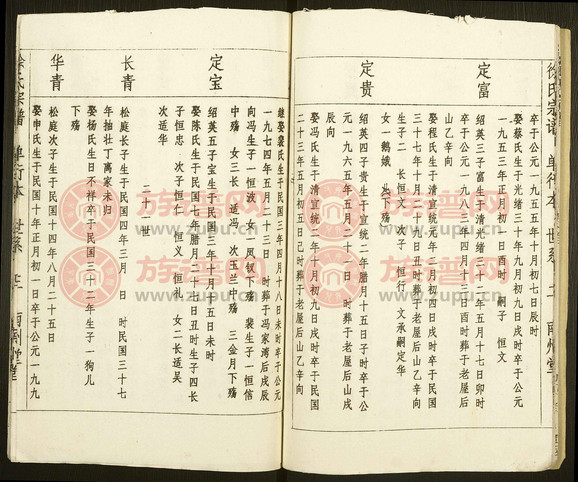 徐氏宗谱 单行本 世系 二 南州堂
卒于公元一九五五年十一月初七日辰时
娶蔡氏生于光绪三十年九月初九日戌时卒于公元
一九五三年正月初一日酉时 嗣子 恒文
定富
绍英三子富生于清光绪三十二年五月十七日卯时
卒于公元一九八三年四月十三日酉时葬于老屋后
山乙辛向
娶程氏生于清宣统元年二月初四日戌时卒于民国
三十七年十月二十九日丑时葬于老屋后山乙辛向
生子二 长恒文 次子 恒行 文承嗣定华
女一鹅娥 处下殇
定贵
绍英四子贵生于宣统二年腊月十五日子时卒于公
元一九六五年五月二十一日 时葬于老屋后山戌
辰向
娶冯氏生于清宣统二年十月初九日戌时卒于民国
二十三年五月初五日己时葬于老屋后山乙辛向
继娶裴氏生于民国三年四月十八日未时卒于公元
一九七四年五月二十三日 时葬于冯家湾后戌辰
向冯氏生子一恒波 女一凤钗下殇 裴生子一恒信
中殇 女三长 适冯 次玉兰中殇 三金月下殇
定宝
绍英五子宝生于民国三年十月十五日未时
娶陈氏生于民国七年腊月二十七日丑时生子四长
子恒忠 次子恒仁 恒义 恒礼 女二长适吴
次适华
二十一世
长青
松庭长子生于民国四年三月 日 时民国三十七
年抽壮丁离家未归
娶杨氏生日不祥卒于民国三十二年生子一狗儿
下殇
华青
松庭次子生于民国十四年八月二十五日
娶申氏生于民国十年正月初一日卒于公元一九九
徐氏宗谱 单行本 世系 二 南州堂
族谱网
www.zupu.cn
族谱网
www.zupu.cn
族谱网
www.zupu.cn
族谱网
www.zupu.cn